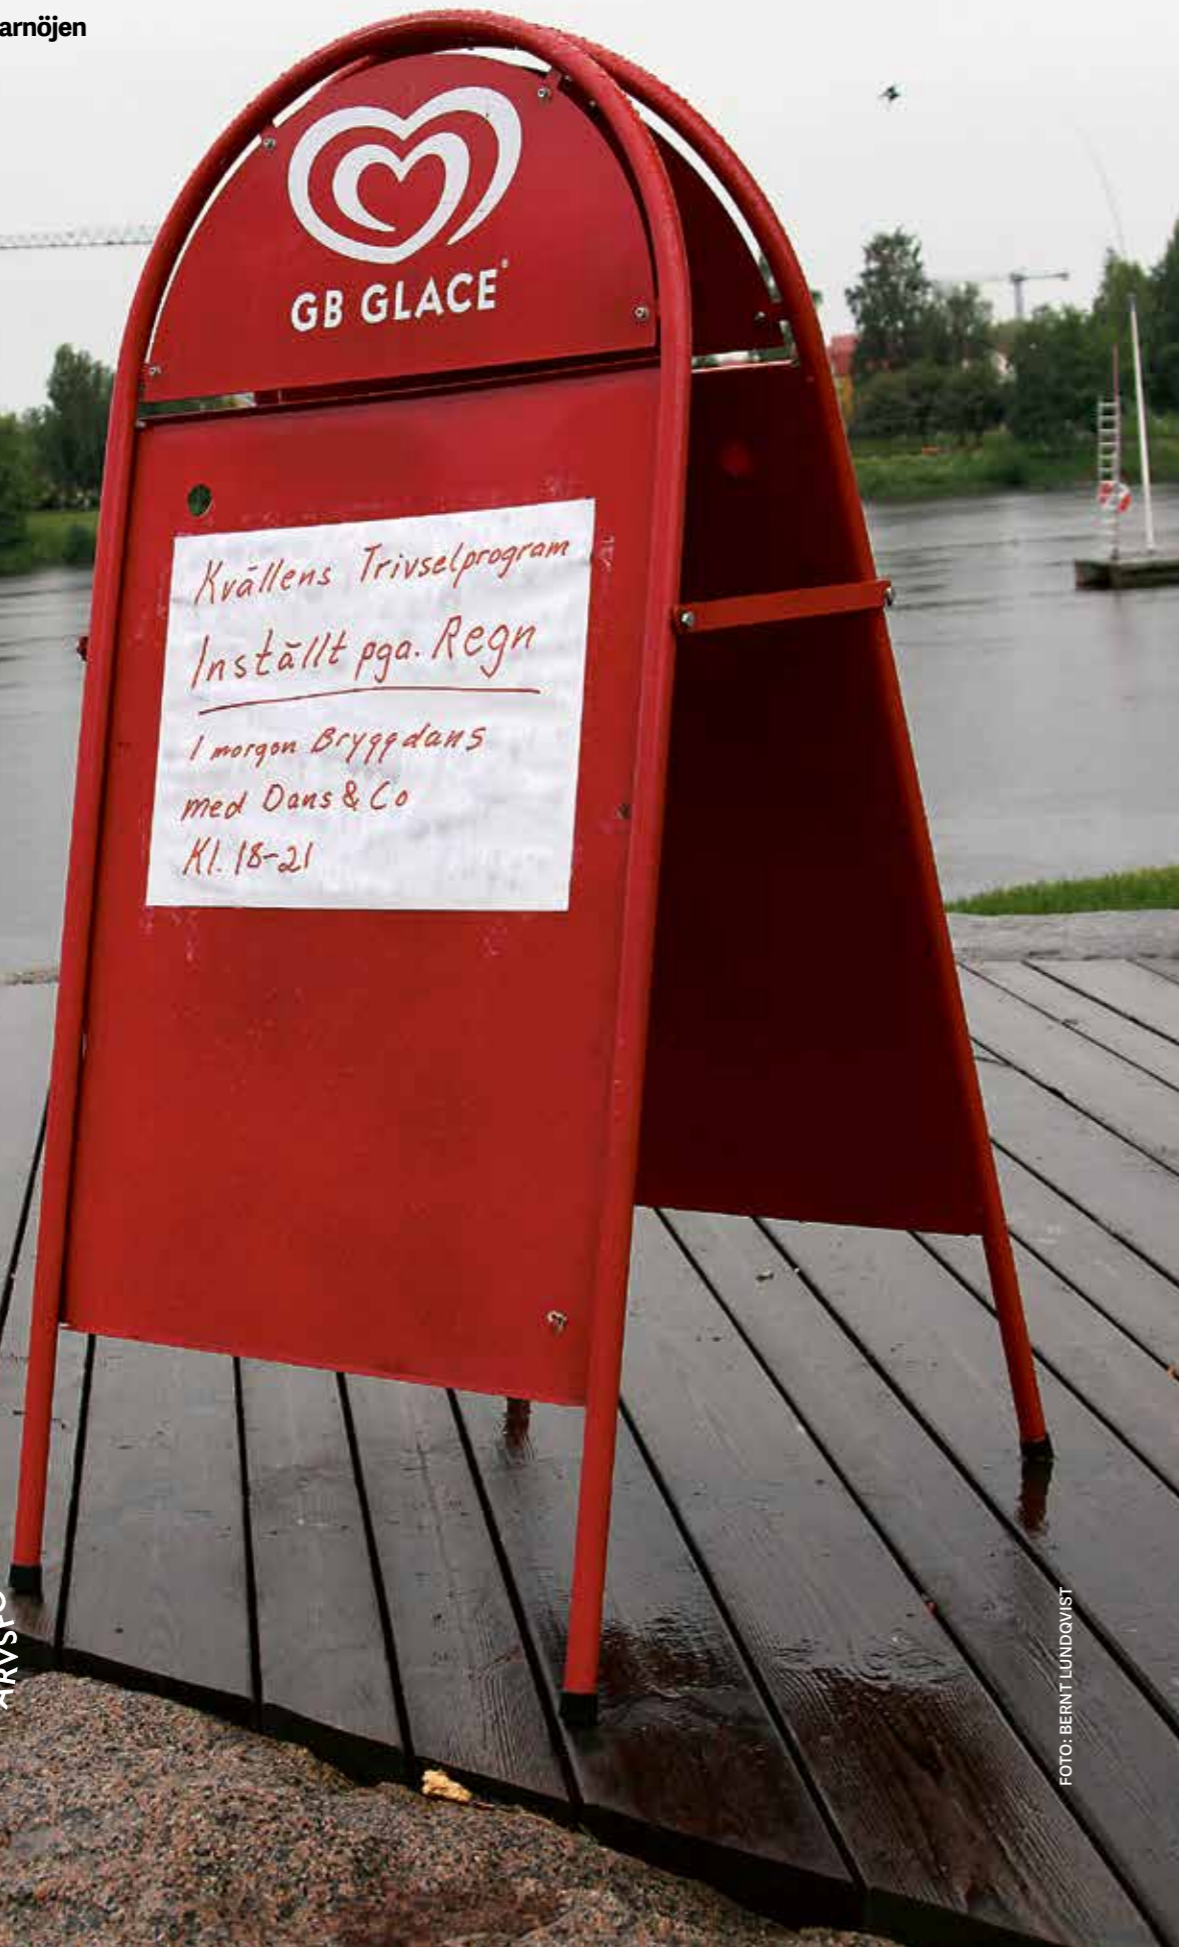 arnöjen
GB GLACE
Kvällens Trivselprogram
Inställt pga. Regn
I morgon Bryggdans
med Dans & Co
Kl. 18-21
FOTO: BERNT LUNDQVIST